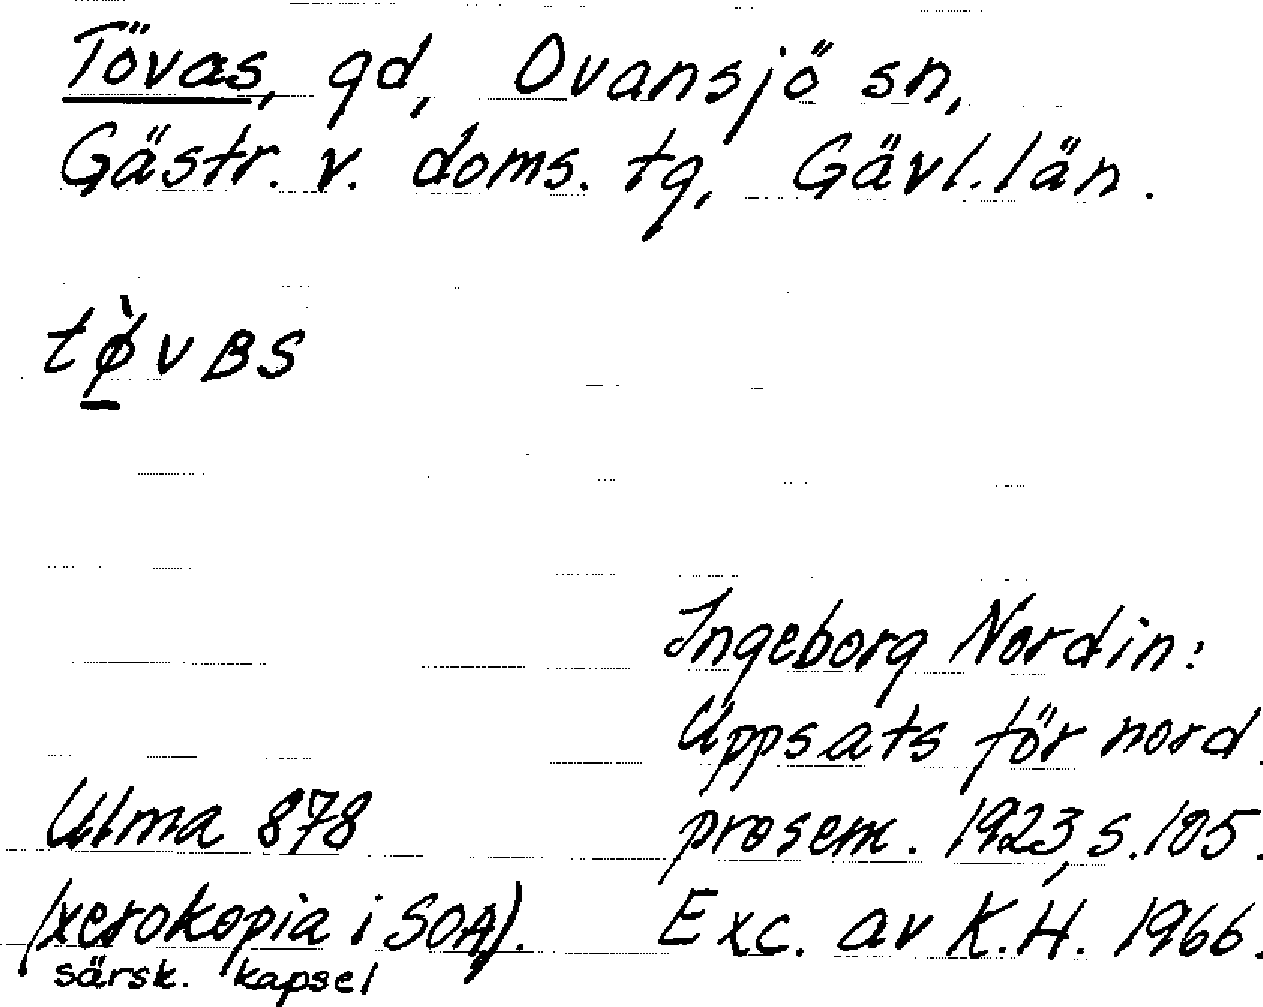 Tövas, gd, Ovansjö sn,
Gästr. v. doms. tg, Gävl. län.
tø̀vBS
Ingeborg Nordin:
Uppsats för nord.
prosem. 1923, s. 105.
Exc. av K.H. 1966.
Ulma 878
(xerokopia i SOA).
särsk. kapsel